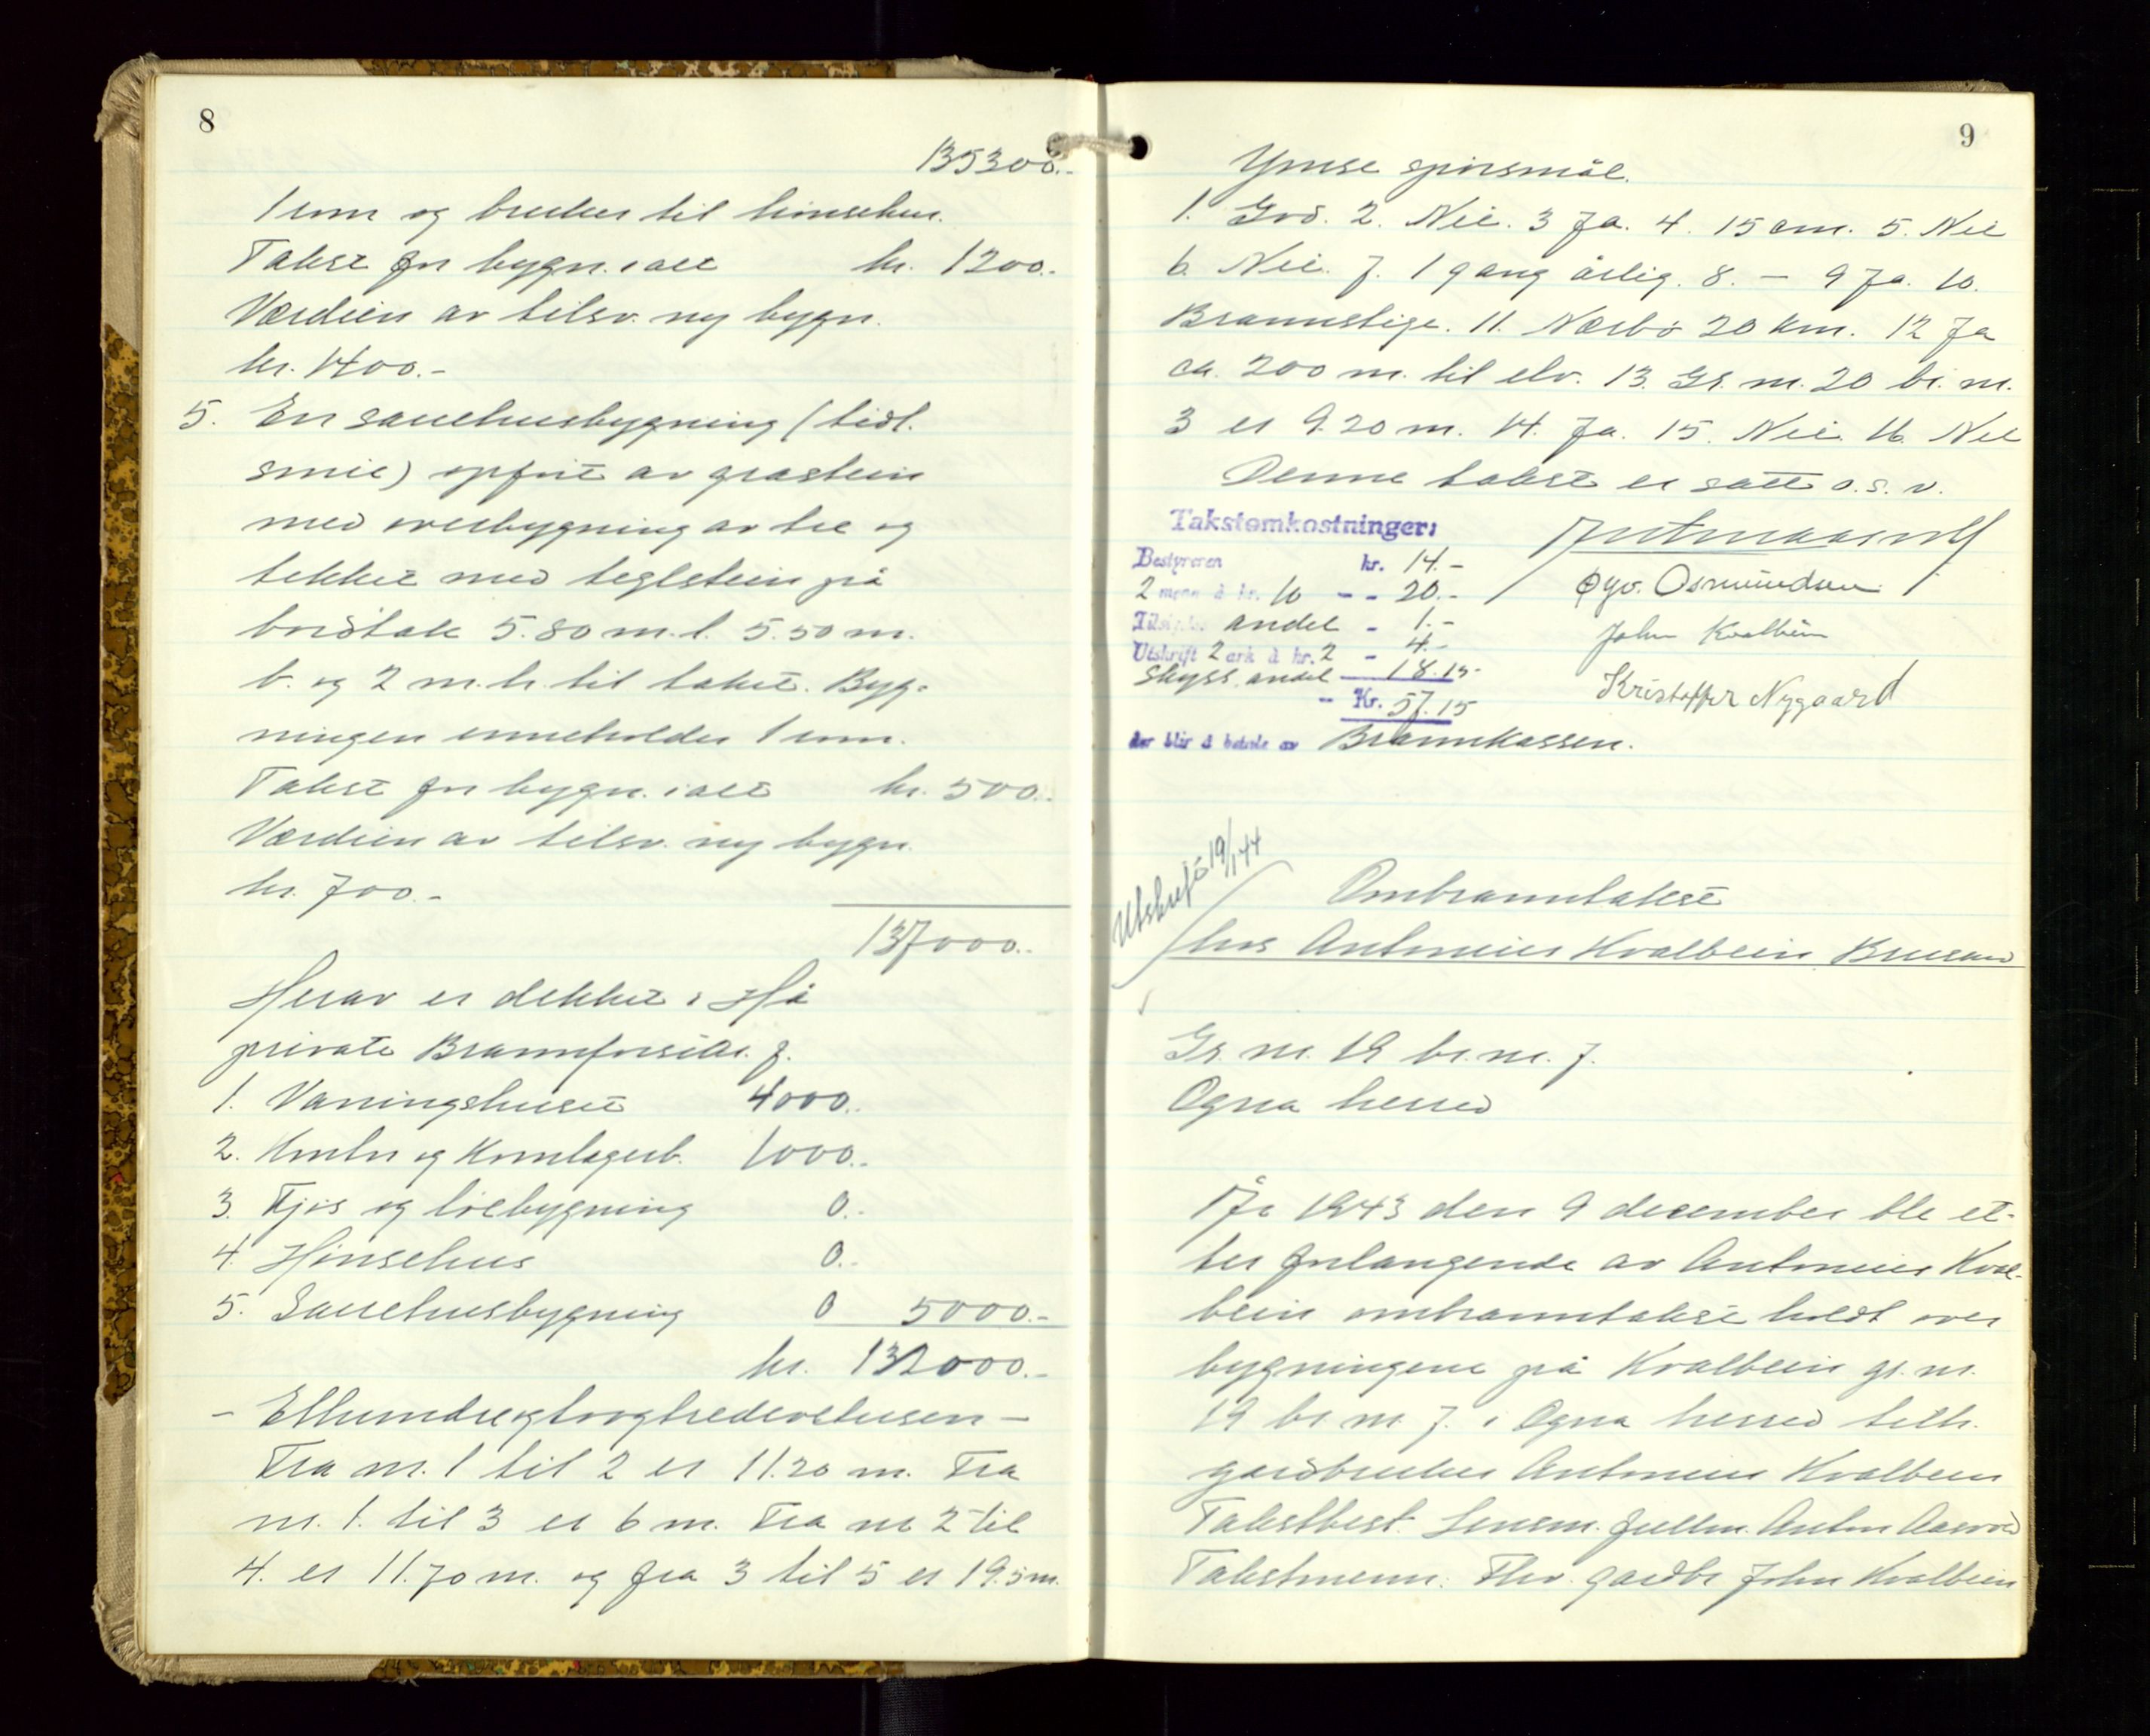 8
135300.-
1 rom og brukes til hønsehus.
Takst for bygn. i alt kr. 1200.-
Værdien av tilsv. ny bygn.
kr. 1400.-
5. En sauehusbygning (tidl.
smie) opført av grastein
med overbygning av tre og
tekket med teglstein på
bordtak 5.80 m. l. 5.50 m.
b. og 2 m. h. til taket. Byg-
ningen inneholder 1 rom.
Takst for bygn. i alt kr. 500.-
Værdien av tilsv. ny bygn.
kr. 700.-
137000.-
Herav er dekket i Hå
private Brannforsikr. f.
1. Vaningshuset 4000.-
2. Korntør og Kornlagerb. 1000.-
3. Fjøs og løebygning 0.-
4. Hønsehus 0.-
5. Sauehusbygning 0 5000.-
kr. 132000.-
- Etthundreogtoogtredevetusen -
Fra nr. 1 til 2 er 11.20 m. Fra
nr. 1. til 3 er 6 m. Fra nr 2 til
4. er 11.70 m. og fra 3 til 5 er 19.5 m.
9
Ymse spørsmål.
1. God. 2. Nei. 3 Ja. 4. 15 cm. 5. Nei
6. Nei. 7. 1 gang årlig. 8. - 9 Ja. 10.
Brannstige. 11. Nærbø 20 km. 12 Ja
ca. 200 m. til elv. 13. Gr. nr. 20 br. nr.
3 er 9.20 m. 14. Ja. 15. Nei. 16. Nei
Denne takst er satt o.s.v.
Takstomkostninger:
Bestyreren kr. 14.-
2 menn à kr. 10 - - 20.-
andel - 1.-
Utskrift 2 ark à kr. 2 - 4.-
Skyss. andel 18.15
- Kr. 57.15
der blir å betale av Brannkassen.
Øyv. Osmundsen
John Kvalbein
Kristoffer Nygaard
Utskrift 19/1 44
Ombranntakst
hos Antonius Kvalbein, Brusand
Gr. nr. 19 br. nr. 7.
Ogna herred
År 1943 den 9 december ble et-
ter forlangende av Antonius Kval-
bein ombranntakst holdt over
bygningene på Kvalbein gr. nr.
19 br nr. 7. i Ogna herred tilh.
gardbruker Antonius Kvalbein
Takstbest. Lensm. fullm. Anton Aasvold
Takstmenn: Thv. gardbr John Kvalbein